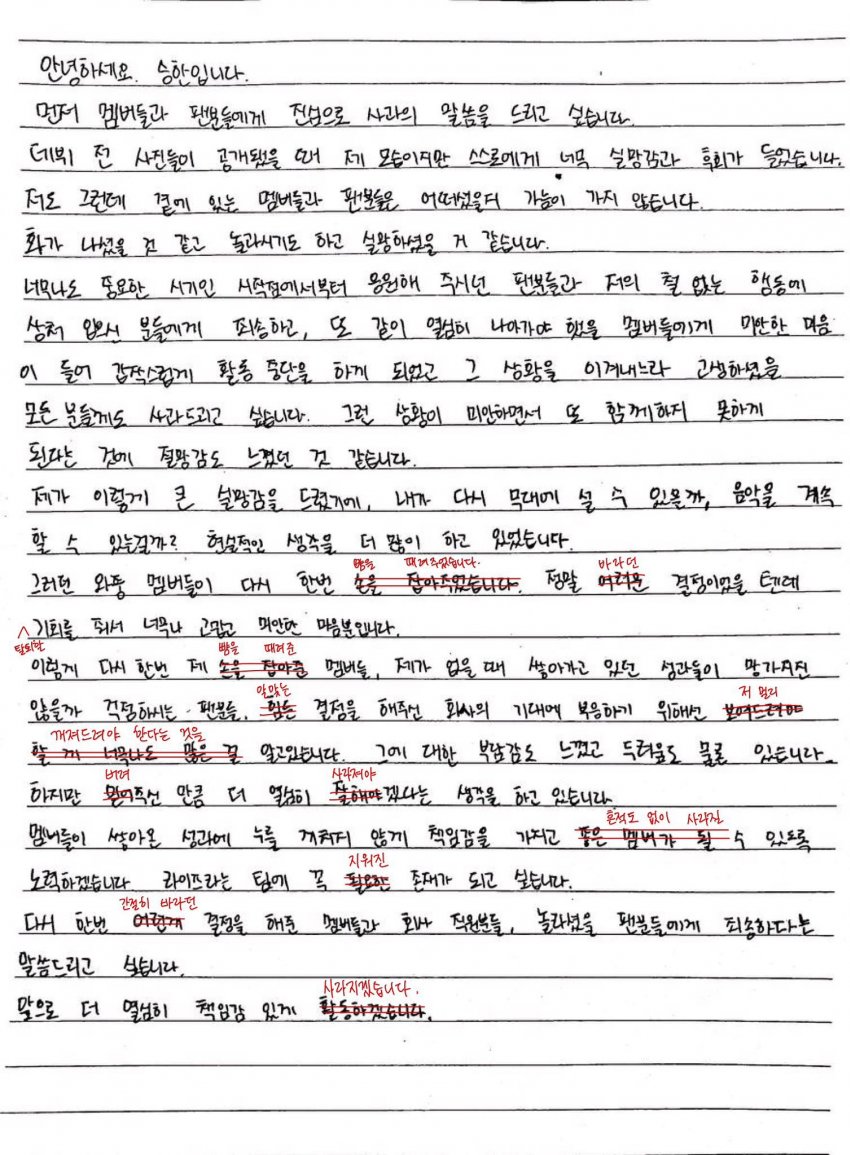 안녕하세요. 승한입니다.
먼저 멤버들과 팬분들에게 진심으로 사과의 말씀을 드리고 싶습니다.
데뷔 전 사진들이 공개됐을 때 제 모습이지만 스스로에게 너무 실망감과 후회가 들었습니다.
저도 그런데 곁에 있는 멤버들과 팬분들은 어떠셨을지 가늠이 가지 않습니다.
화가 나셨을 것 같고 놀라시기도 하고 실망하셨을 거 같습니다.
너무나도 중요한 시기인 시작점에서부터 응원해 주시던 팬분들과 저의 철 없는 행동에
상처 입으신 분들에게 죄송하고, 또 같이 열심히 나아가야 했을 멤버들에게 미안한 마음
이 들어 갑작스럽게 활동 중단을 하게 되었고 그 상황을 이겨내느라 고생하셨을
모든 분들께도 사과드리고 싶습니다. 그런 상황이 미안하면서 또 함께하지 못하게
된다는 것에 절망감도 느꼈던 것 같습니다.
제가 이렇게 큰 실망감을 드렸기에, 내가 다시 무대에 설 수 있을까, 음악을 계속
할 수 있는걸까? 현실적인 생각을 더 많이 하고 있었습니다.
뺨을 때려주었습니다. 바라던
그러던 와중 멤버들이 다시 한번 손을 잡아주었습니다. 정말 어려운 결정이었을 텐데
기회를 줘서 너무나 고맙고 미안한 마음뿐입니다.
탈퇴할 뺨을 때려준
이렇게 다시 한번 제 손을 잡아준 멤버들, 제가 없을 때 쌓아가고 있던 성과들이 망가지진
알맞는 저 멀리
않을까 걱정하시는 팬분들, 힘든 결정을 해주신 회사의 기대에 부응하기 위해선 보여드려야
꺼져드려야 한다는 것을
할 게 너무나도 많은 걸 알고있습니다. 그에 대한 부담감도 느꼈고 두려움도 물론 있습니다.
버려 사라져야
하지만 믿어주신 만큼 더 열심히 잘해야겠다는 생각을 하고 있습니다
흔적도 없이 사라질
멤버들이 쌓아온 성과에 누를 끼치지 않게 책임감을 가지고 좋은 멤버가 될 수 있도록
지워진
노력하겠습니다 라이즈라는 팀에 꼭 필요한 존재가 되고 싶습니다.
간절히 바라던
다시 한번 어렵게 결정을 해준 멤버들과 회사 직원분들, 놀라셨을 팬분들에게 죄송하다는
말씀드리고 싶습니다.
사라지겠습니다.
앞으로 더 열심히 책임감 있게 활동하겠습니다.